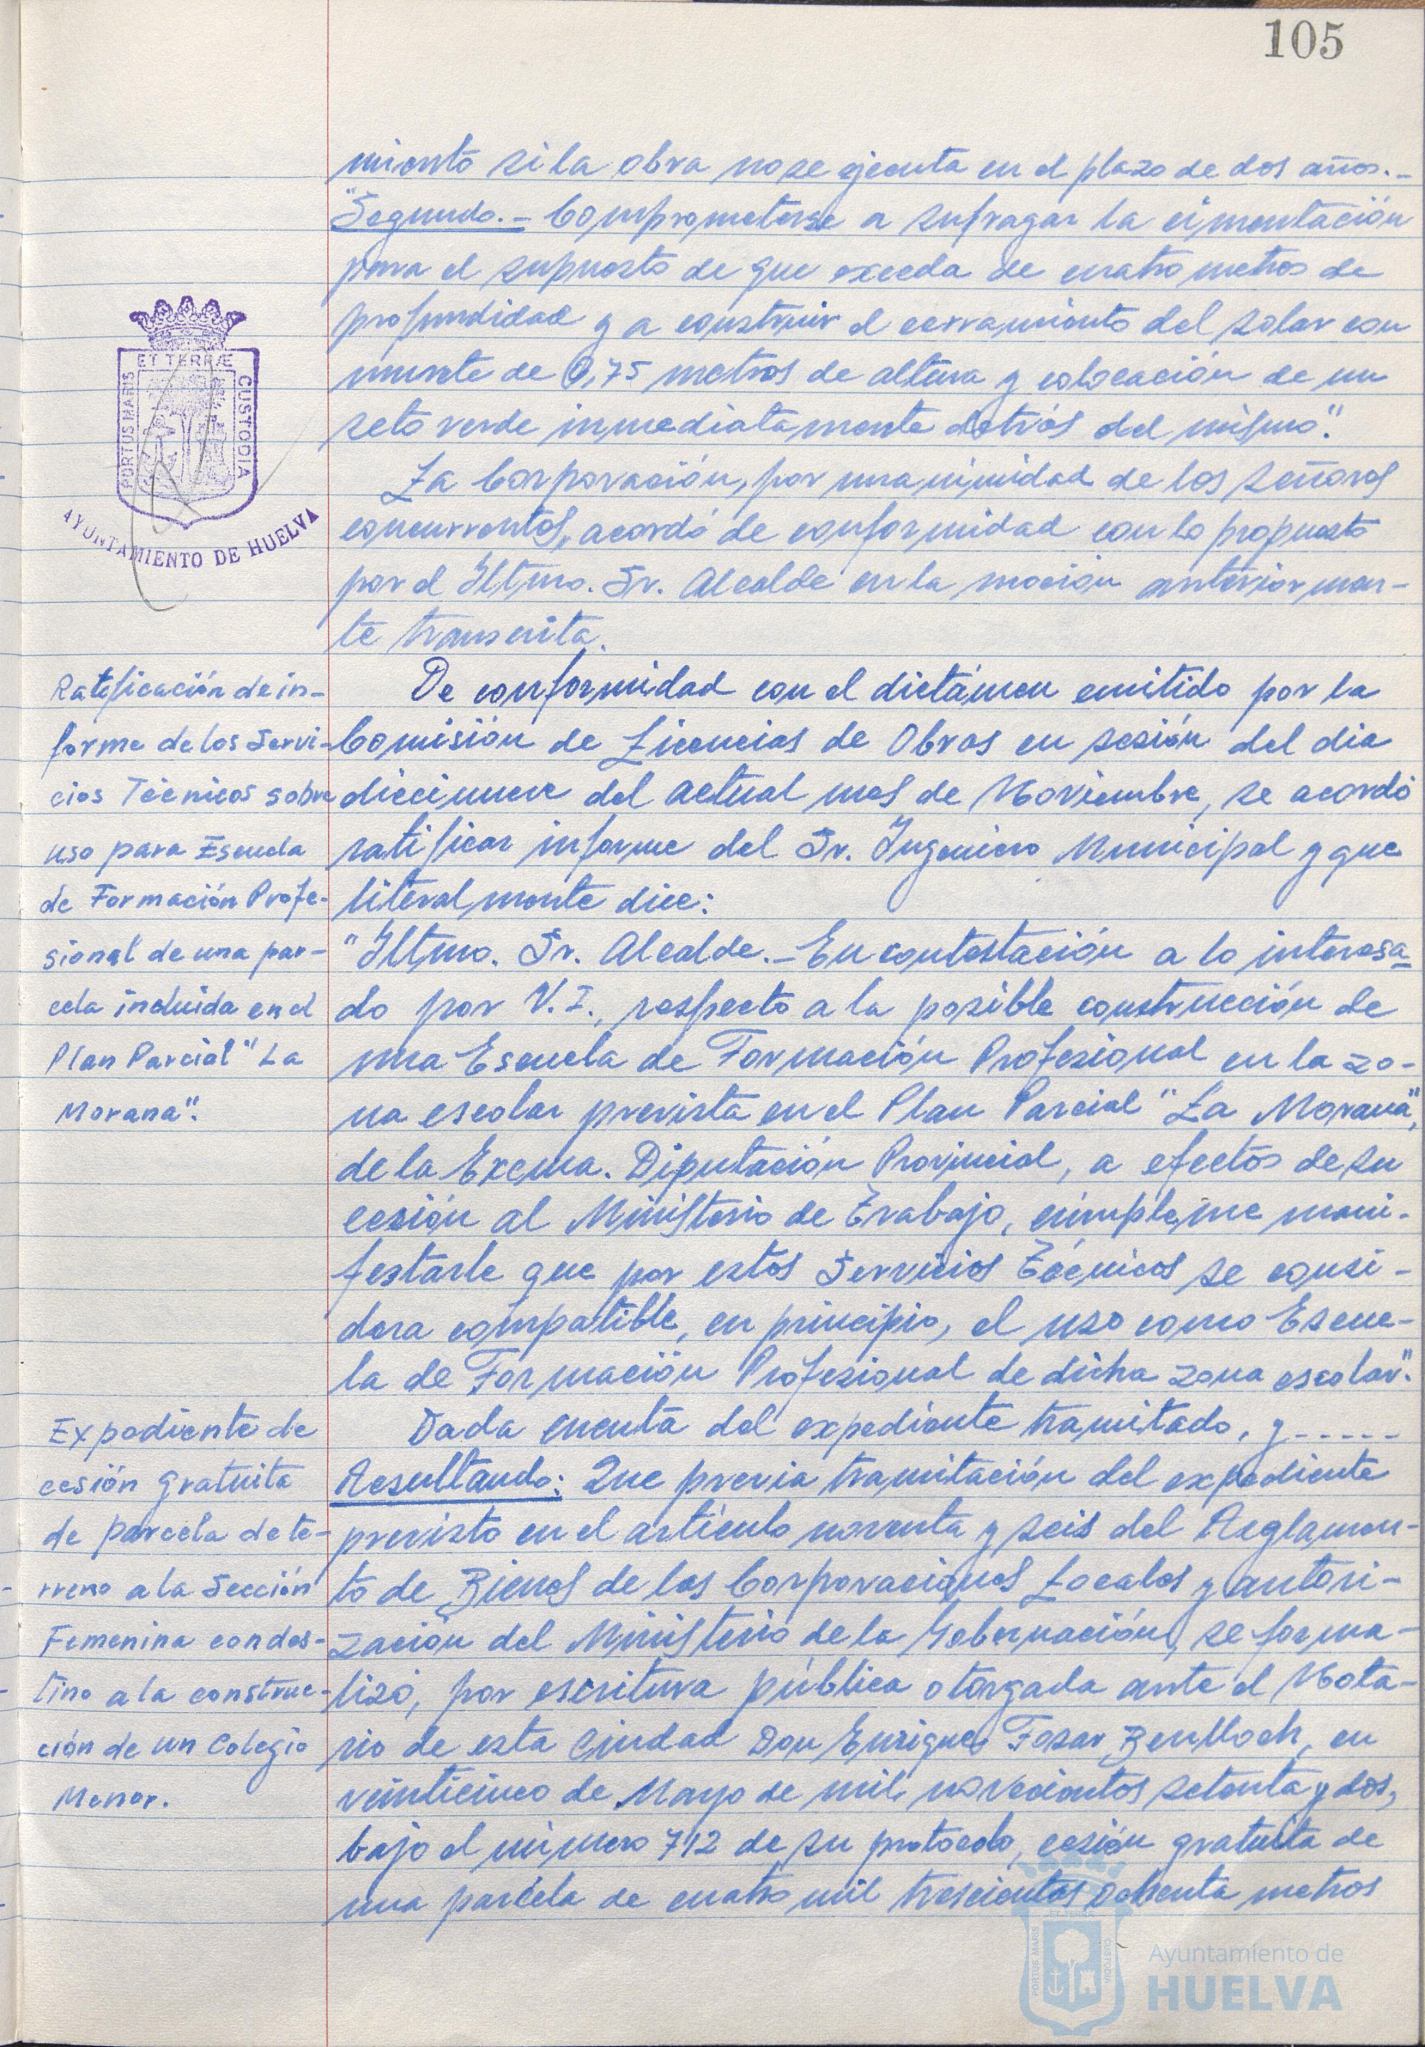 105
miento si la obra no se ejecuta en el plazo de dos años.-
"Segundo.- Comprometerse a sufragar la cimentación
para el supuesto de que exceda de cuatro metros de
profundidad y a construir el cerramiento del solar con
murete de 0,75 metros de altura y colocación de un
seto verde inmediatamente detrás del mismo".
ET TERRÆ
PORTUS MARIS
CUSTODIA
AYUNTAMIENTO DE HUELVA
La Corporación, por unanimidad de los señores
concurrentes, acordó de conformidad con lo propuesto
por el Iltmo. Sr. Alcalde en la moción anteriormen-
te transcrita.
Ratificación de in-
forme de los Servi-
cios Técnicos sobre
uso para Escuela
de Formación Profe-
sional de una par-
cela incluida en el
Plan Parcial "La
Morana".
De conformidad con el dictámen emitido por la
Comisión de Licencias de Obras en sesión del dia
diecinueve del actual mes de Noviembre, se acordó
ratificar informe del Sr. Ingeniero Municipal y que
literalmente dice:
"Iltmo. Sr. Alcalde.- En contestación a lo interesa-
do por V.I., respecto a la posible construcción de
una Escuela de Formación Profesional en la zo-
na escolar prevista en el Plan Parcial "La Morana",
de la Excma. Diputación Provincial, a efectos de su
cesión al Ministerio de Trabajo, cúmpleme mani-
festarle que por estos Servicios Técnicos se consi-
dera compatible, en principio, el uso como Escue-
la de Formación Profesional de dicha zona escolar".
Expediente de
cesión gratuita
de parcela de te-
rreno a la Sección
Femenina con des-
tino a la construc-
ción de un Colegio
Menor.
Dada cuenta del expediente tramitado, y-----
Resultando: Que previa tramitación del expediente
previsto en el artículo noventa y seis del Reglamen-
to de Bienes de las Corporaciones Locales y autori-
zación del Ministerio de la Gobernación, se forma-
lizó, por escritura pública otorgada ante el Nota-
rio de esta Ciudad Don Enrique Fosar Benlloch, en
veinticinco de Mayo de mil novecientos setenta y dos,
bajo el número 712 de su protocolo, cesión gratuita de
una parcela de cuatro mil trescientos ochenta metros
PORTUS MARIS
CUSTODIA
Ayuntamiento de
HUELVA